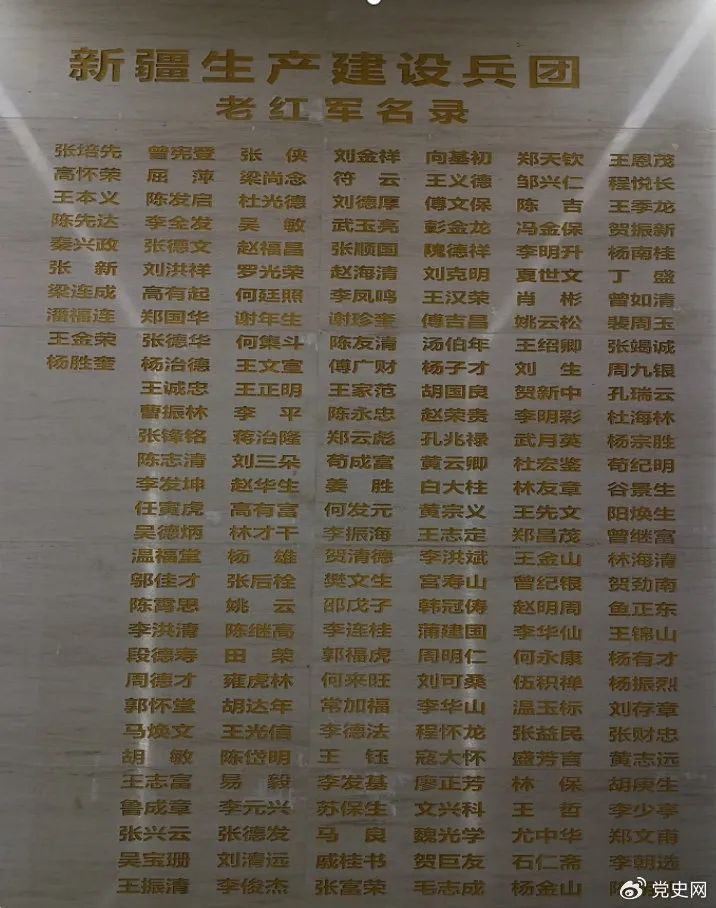 新疆生产建设兵团
老红军名录
张培先 曾宪登 张侠 刘金祥 向基初 郑天钦 王恩茂
高怀荣 屈萍 梁尚念 符云 王义德 邹兴仁 程悦长
王本义 陈发启 杜光德 刘德厚 傅文保 陈吉 王季龙
陈先达 李全发 吴敏 武玉亮 彭金龙 冯金保 贺振新
秦兴政 张德文 赵福昌 张顺国 隗德祥 李明升 杨南桂
张新 刘洪祥 罗光荣 赵海清 刘克明 夏世文 丁盛
梁连成 高有起 何廷照 李凤鸣 王汉荣 肖彬 曾如清
潘福连 郑国华 谢年生 谢珍奎 傅吉昌 姚云松 裴周玉
王金荣 张德华 何集斗 陈友清 汤伯年 王绍卿 张竭诚
杨胜奎 杨治德 王文宣 傅广财 杨子才 刘生 周九银
王诚忠 王正明 王家范 胡国良 贺新中 孔瑞云
曹振林 李平 陈永忠 赵荣贵 李明彩 杜海林
张锋铭 蒋治隆 郑云彪 孔兆禄 武月英 杨宗胜
陈志清 刘三朵 苟成富 黄云卿 杜宏鉴 苟纪明
李发坤 赵华生 姜胜 白大柱 林友章 谷景生
任寅虎 高有富 何发元 黄宗义 王先文 阳焕生
吴德炳 林才干 李振海 王志定 郑昌茂 曾继富
温福堂 杨雄 贺清德 李洪斌 王金山 林海清
邬佳才 张后栓 樊文生 宫寿山 曾纪银 贺劲南
陈霄恩 姚云 邵戊子 韩冠俦 赵明周 鱼正东
李洪清 陈继高 李连桂 蒲建国 李华仙 王锦山
段德寿 田荣 郭福虎 周明仁 何永康 杨有才
周德才 雍虎林 何来旺 刘可桑 伍积禅 杨振烈
郭怀堂 胡达年 常加福 李华山 温玉标 刘存章
马焕文 王光信 李德法 程怀龙 张益民 张财忠
胡敏 陈岱明 王钰 寇大怀 盛芳言 黄志远
王志富 易毅 李发基 廖正芳 林保 胡庚生
鲁成章 李元兴 苏保生 文兴科 王哲 李少亭
张兴云 张德发 马良 魏光学 尤中华 郑文甫
吴宝珊 刘清远 戚桂书 贺巨友 石仁斋 李朝选
王振清 李俊杰 张富荣 毛志成 杨金山
党史网